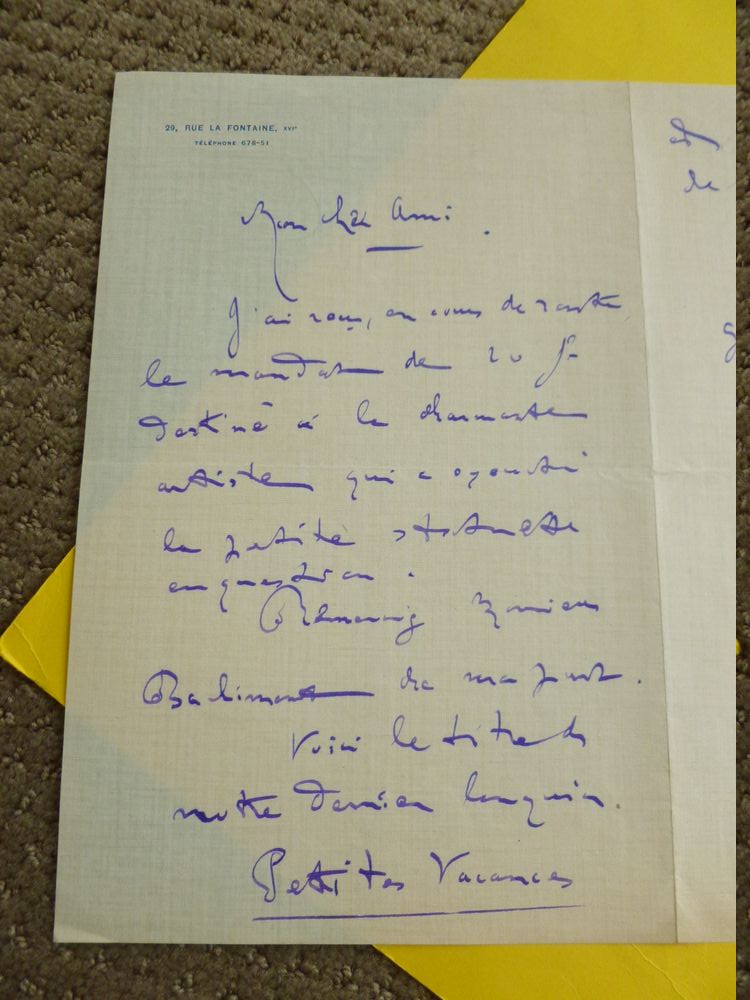 29, RUE LA FONTAINE, XVIᵉ
TÉLÉPHONE 678-51
Mon cher Ami.
J'ai reçu, en cours de route,
le mandat de 20 f
destiné à la charmante
artiste qui a
la petite statuette
en question.
Remerciez Monsieur
de ma part.
Voici le titre de
notre dernier bouquin.
Petites Vacances
et
de